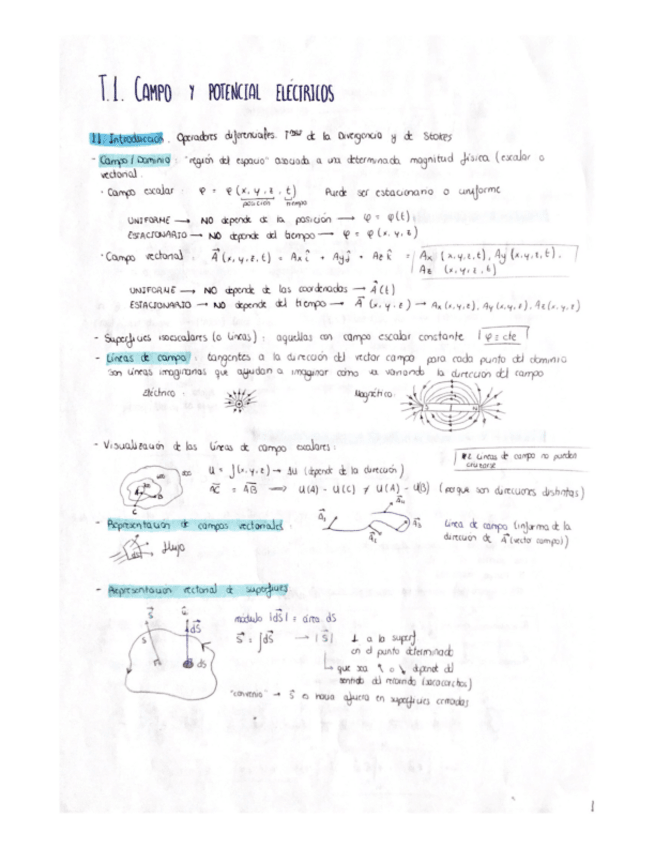 T.1. CAMPO Y POTENCIAL ELÉCTRICOS
1.1. Introducción. Operadores diferenciales. Tmas de la Divergencia y de Stokes
- Campo / Dominio : "región del espacio" asociada a una determinada magnitud física (escalar o
vectorial.
· Campo escalar φ = φ (x, y, z, t) Puede ser estacionario o uniforme
posición tiempo
UNIFORME → NO depende de la posición → φ = φ(t);
ESTACIONARIO → NO depende del tiempo → φ = φ (x, y, z)
· Campo vectorial: A⃗ (x, y, z, t) = Ax î + Ay ĵ + Az k̂ = Ax (x, y, z, t), Ay (x, y, z, t),
Az (x, y, z, t)
UNIFORME → NO depende de las coordenadas → A⃗ (t)
ESTACIONARIO → NO depende del tiempo → A⃗ (x, y, z) → Ax(x,y,z), Ay(x,y,z), Az(x,y,z)
- Superficies isoescalares (o líneas) : aquellas con campo escalar constante φ = cte
- Líneas de campo : tangentes a la dirección del vector campo para cada punto del dominio
son líneas imaginarias que ayudan a imaginar cómo va variando la dirección del campo
Eléctrico : Magnético :
S N
- Visualización de las líneas de campo escalares :
#2 Líneas de campo no pueden
cruzarse
U = f(x, y, z) → ΔU (depende de la dirección)
A B C
AC = AB → U(A) - U(C) ≠ U(A) - U(B) (porque son direcciones distintas)
- Representación de campos vectoriales :
A⃗1 A⃗2 A⃗3
Línea de campo (informa de la
dirección de A⃗ (vecto campo))
flujo
- Representación vectorial de superficies
S⃗ û dS⃗ S dS
módulo |dS⃗| = área dS
S⃗ = ∫dS⃗ → |S⃗| ⊥ a la superf
en el punto determinado
que sea ↑ o ↓ depende del
sentido del recorrido (sacacorchos)
"convenio" → S⃗ es hacia afuera en superficies cerradas
1